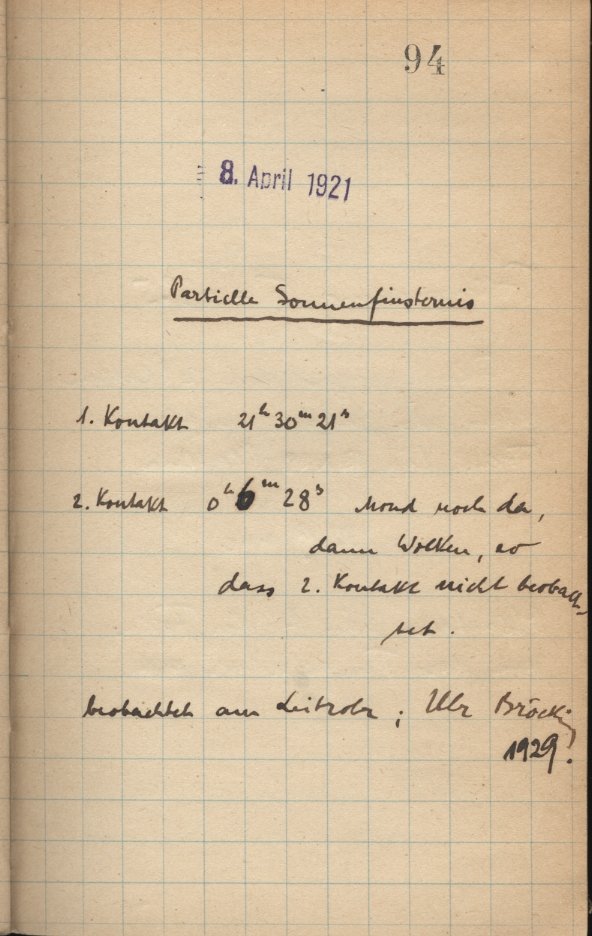 94
8. April 1921
Partielle Sonnenfinsternis
1. Kontakt 21ʰ 30ᵐ 21ˢ
2. Kontakt 0ʰ 6ᵐ 28ˢ Mond noch da,
dann Wolken, so
dass 2. Kontakt nicht beobach-
tet.
beobachtet am Leitrohr; Uhr Bröcking
1929.